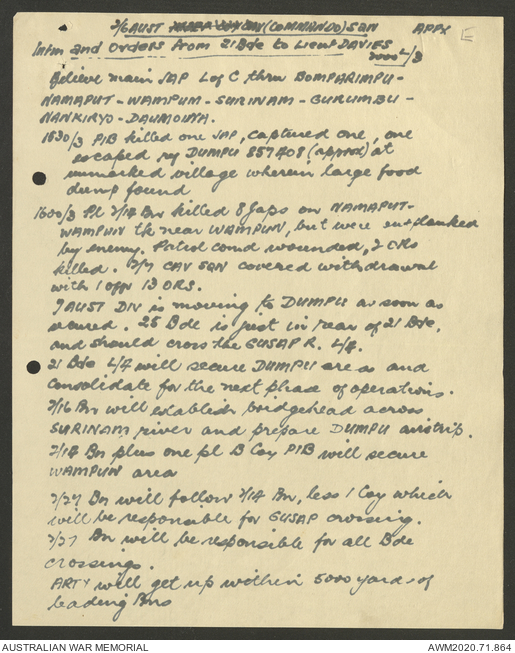 2/6 AUST CAV (COMMANDO) SQN APPX E
Infm and Orders from 21 Bde to Lieut DAVIES
2000 L/3
Believe main JAP L of C thru BOMPARIMPU-
NAMAPUT - WAMPUM - SURINAM - GURUMBU -
NANKIRYO - DAUMOUYA.
1530/3 PIB killed one JAP, captured one, one
escaped MR DUMPU 857408 (approx) at
unmarked village wherein large food
dump found
1600/3 Pl 2/14 Bn killed 8 Japs on NAMAPUT-
WAMPUN tk near WAMPUN, but were outflanked
by enemy. Patrol comd wounded, 2 ORs
killed. 2/7 CAV SQN covered withdrawal
with 1 offr 13 ORS.
7 AUST DIV is moving to DUMPU as soon as
secured. 25 Bde is just in rear of 21 Bde,
and should cross the GUSAP R. L/4.
21 Bde L/4 will secure DUMPU area and
consolidate for the next phase of operations.
2/16 Bn will establish bridgehead across
SURINAM river and prepare DUMPU airstrip.
2/14 Bn plus one pl B Coy PIB will secure
WAMPUN area
2/27 Bn will follow 2/14 Bn, less 1 Coy which
will be responsible for GUSAP crossing.
2/27 Bn will be responsible for all Bde
crossings.
ARTY will get up within 5000 yards of
leading Bns
AUSTRALIAN WAR MEMORIAL AWM2020.71.864